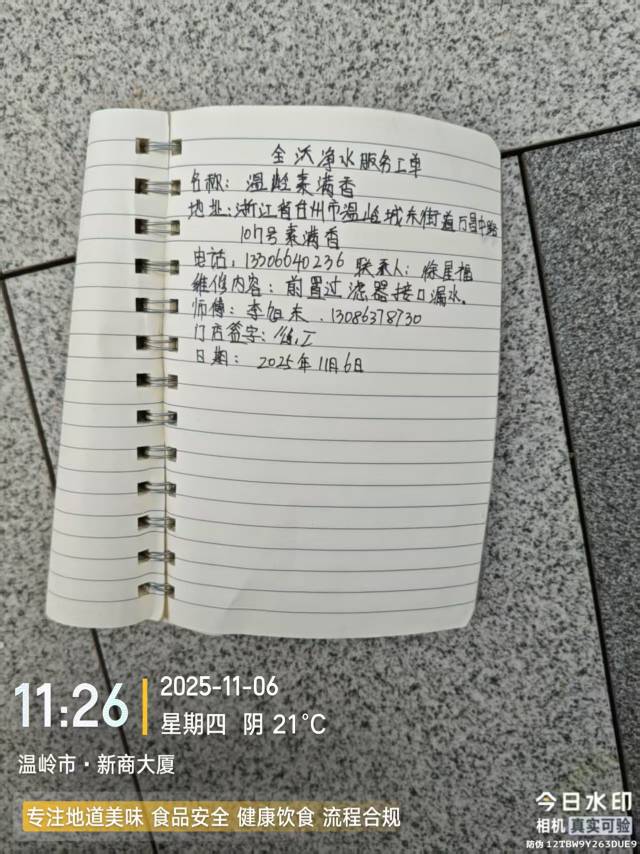 全沃净水服务工单
名称：温岭素满香
地址：浙江省台州市温岭城东街道万昌中路
107号素满香
电话：13306640236 联系人：徐星福
维修内容：前置过滤器接口漏水。
师傅：李旭东．13086378730
门店签字：
日期：2025年11月6日
11:26
2025-11-06
星期四 阴 21°C
温岭市·新商大厦
专注地道美味 食品安全 健康饮食 流程合规
今日水印
相机 真实可验
防伪 12TBW9Y263DUE9